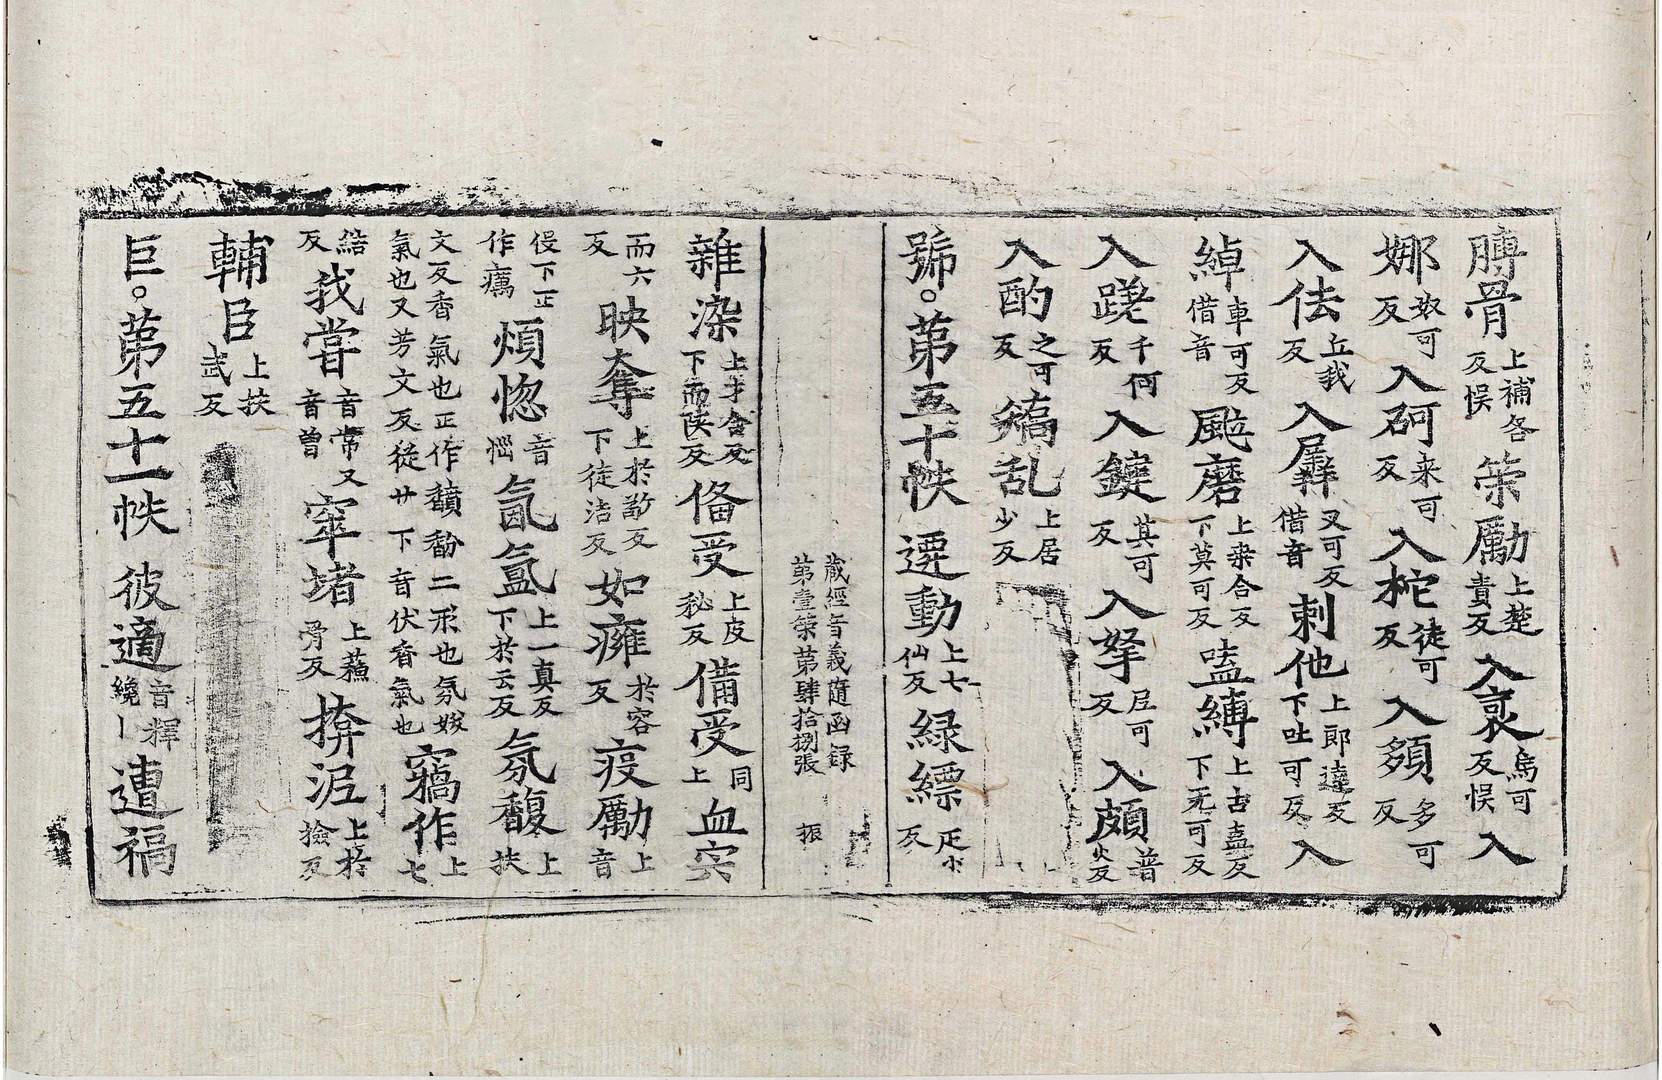 膊骨上補各反悮䇿勵上楚責反入㝹烏可反悮入
娜奴可反入砢来可反入柁徒可反入顡多可反
入佉丘我反入㞘叉可反借音剌他上郎達反下吐可反入
綽車可反借音颱磨上桒合反下莫可反嗑縛上古盍反下无可反
入蹉千何反入鍵其可反入拏𡰱可反入頗普火反
入酌之可反矯乱上居少反
號。苐五十帙 遷動上七仙反緑縹疋小反
藏經音義隨函録 苐壹䇿苐肆拾捌張 振
雜染上才合反下而陕反俻受上皮秘反備受同上血宍
而六反映奪上於敬反下徒活反如癕於容反疫勵上音
役下正作癘煩惚音惱氤氳上一真反下於云反氛馥上扶
文反香氣也正作馩馚二形也氛妖氣也又芳文反從廾下音伏香氣也竊作上七
結反我甞音常又音曽窣堵上蘓骨反揜泥上於撿反
輔臣上扶武反
巨。苐五十一帙 彼適音釋纔丨遭福